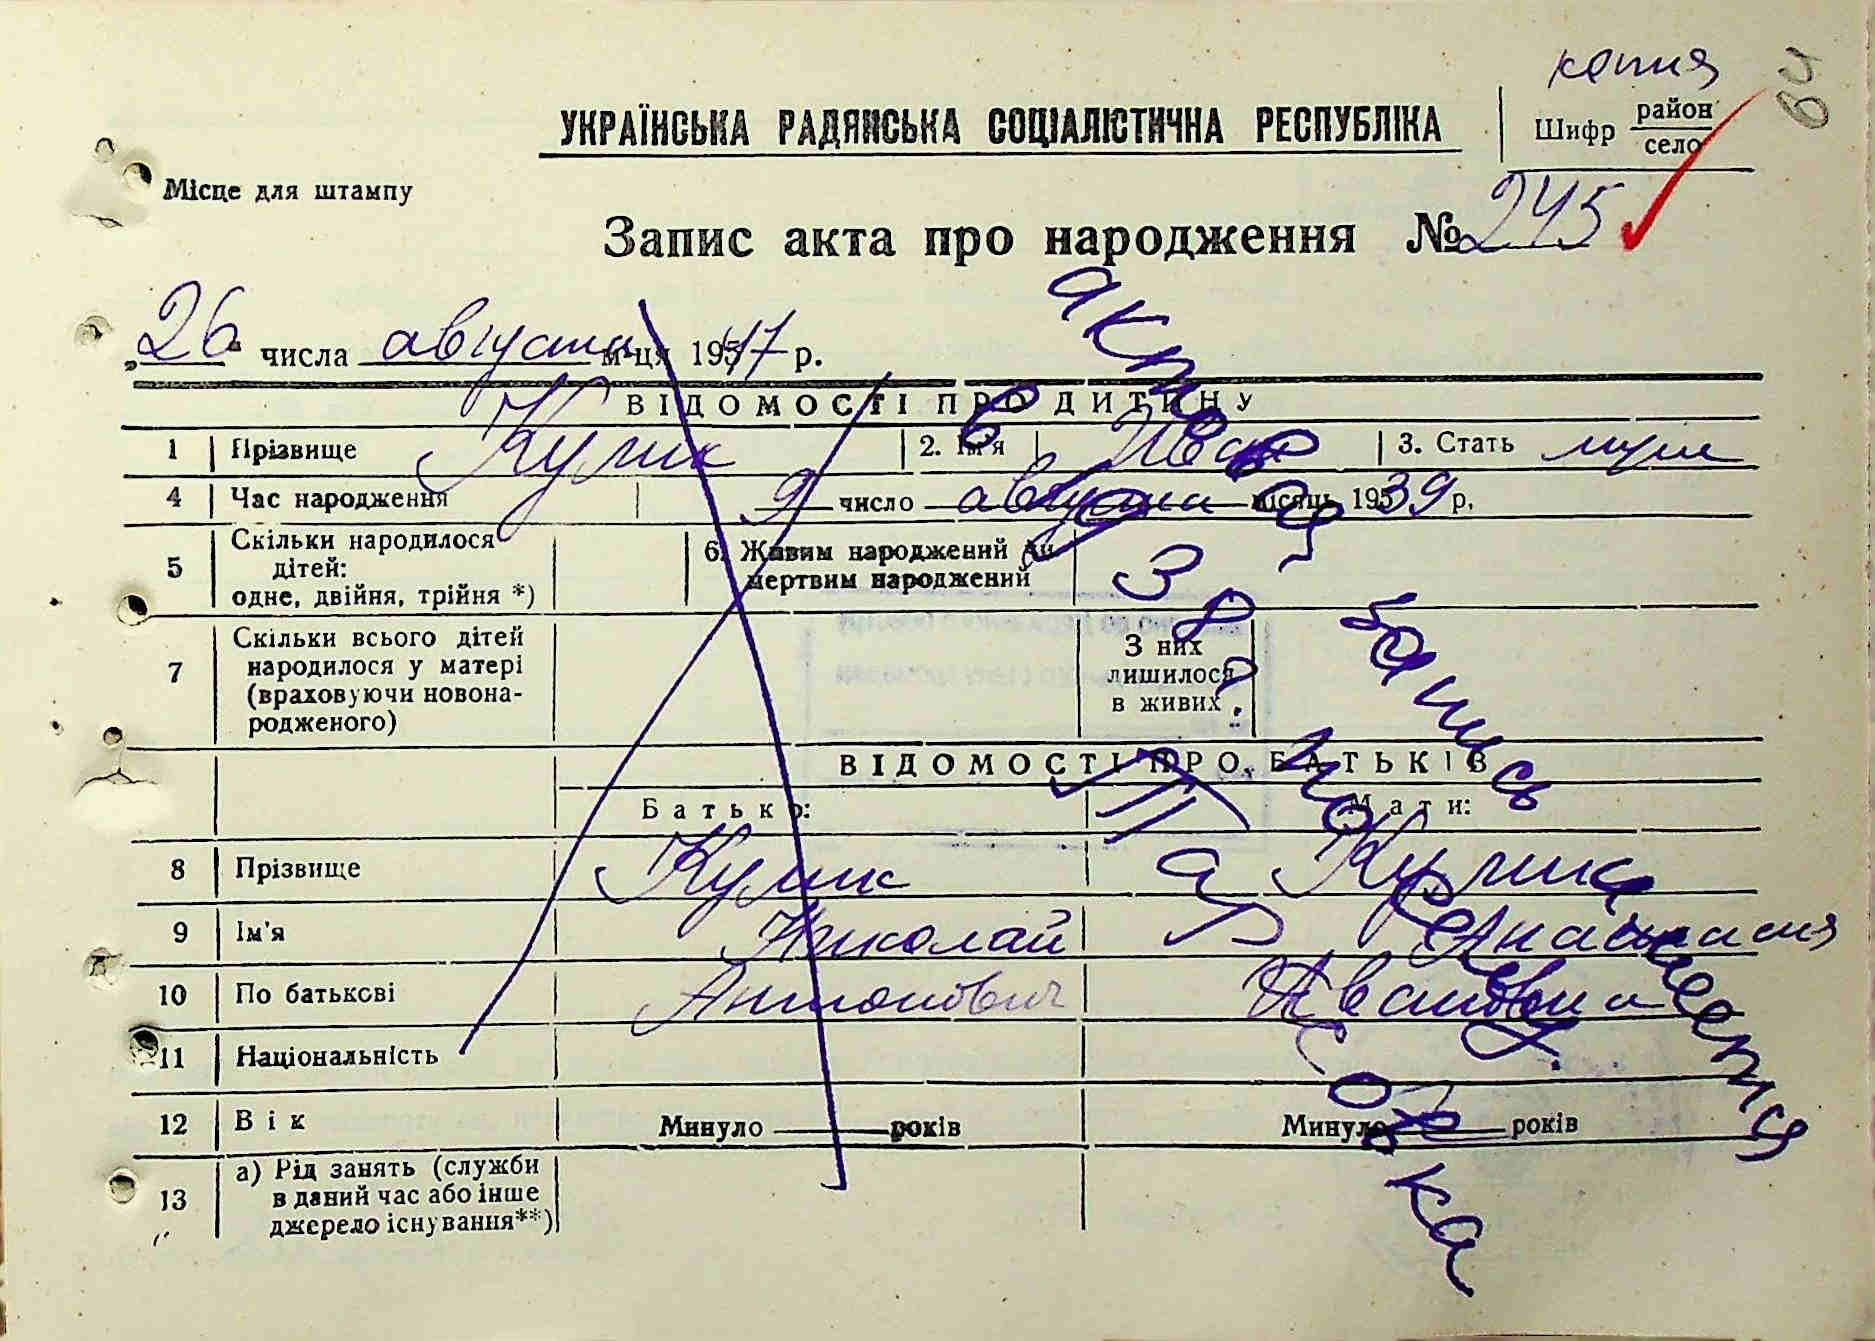 копия
64
УКРАЇНСЬКА РАДЯНСЬКА СОЦІАЛІСТИЧНА РЕСПУБЛІКА
Шифр район село
Місце для штампу
Запис акта про народження № 245
„26" числа августа м-ця 1947 р.
ВІДОМОСТІ ПРО ДИТИНУ
1 Прізвище Кулик 2. Ім'я Иван 3. Стать муж
4 Час народження 9 число августа місяць 1939 р.
5 Скільки народилося дітей: одне, двійня, трійня *) 6. Живим народжений чи мертвим народжений
7 Скільки всього дітей народилося у матері (враховуючи новонародженого) З них лишилося в живих
ВІДОМОСТІ ПРО БАТЬКІВ
Батько: Мати:
8 Прізвище Кулик Кулик
9 Ім'я Николай Анастасия
10 По батькові Антонович Ивановна
11 Національність
12 Вік Минуло років Минуло років
13 а) Рід занять (служби в даний час або інше джерело існування**)
актовая запись